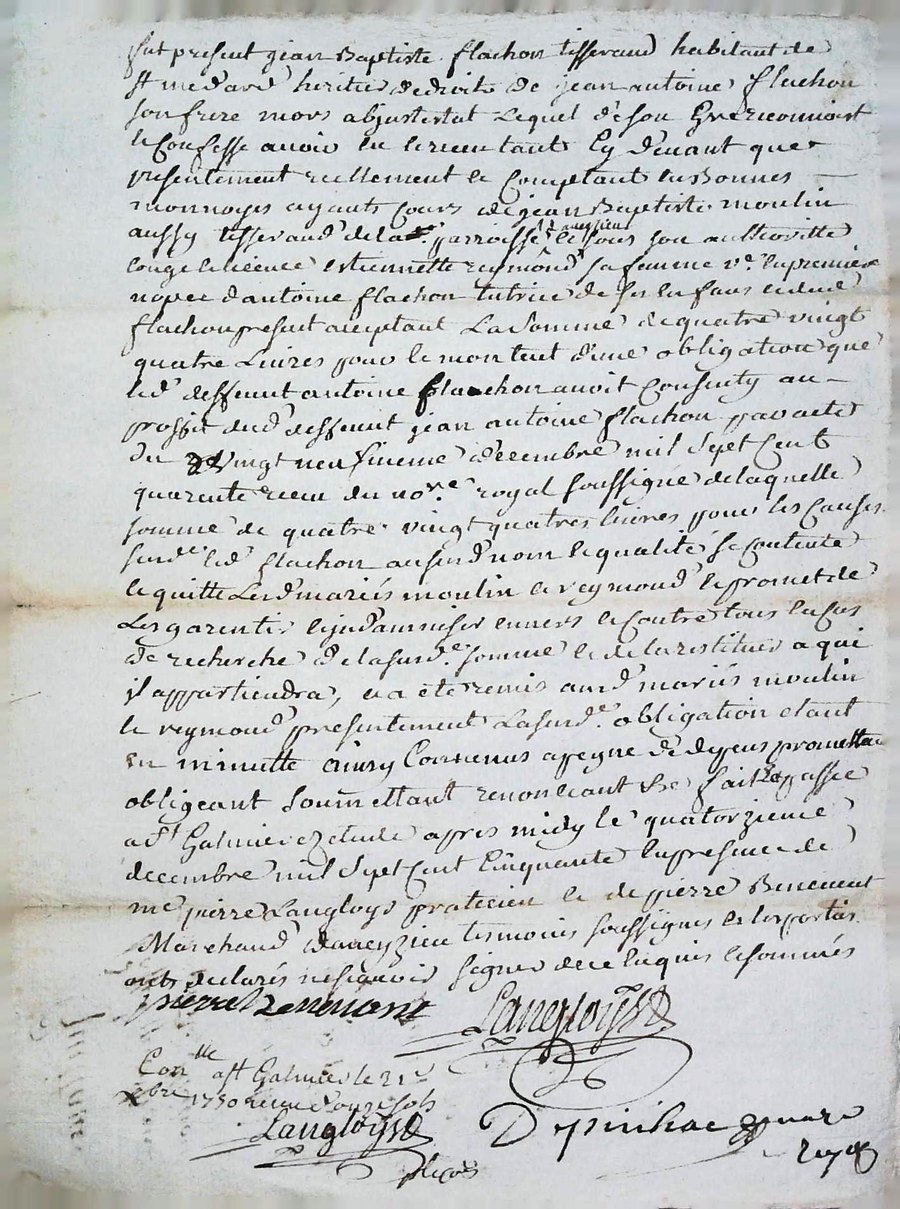 fut present jean Baptiste flachon tisserand habitant de
st medard heritier de droit de jean antoine flachon
son frere mors abjntestat Lequel de son Gré reconnoist
le Confesse avoir eu le receu tant Cy devant que
presentement reellement le Comptant en Bonnes
monnoyes ayants Cours de jean Baptiste moulin
aussy tisserand de lad.e parroisse le sous son authoritté
Conge le licence estiennette reymond sa femme v.e en premiere
nopce d'antoine flachon tutrice de ses enfans dud
flachon present acceptant La Somme de quatre vingt
quatre Livres pour le montent d'une obligation que
led deffunt antoine flachon avoit Consenty au
proffit dud deffunt jean antoine flachon par acte
du vingt neufvieme decembre mil Sept Cent
quarente receu du no.re royal soussigné de laquelle
somme de quatre vingt quatres livres pour les Causes
susd.e led flachon aususd nom le qualité se Contente
le quitte Lesd mariés moulin le reymond le promet de
Les garentir le jndamniser envers le Contre tous en Cas
de recherche de la susd.e somme le de la restituer a qui
il appartiendra, et a eté remis ausd mariés moulin
le reymond presentement La susd.e obligation etant
en minutte ainsy Convenus a peyne de depens promettant
obligeant Soumettant renonceant &c fait & passé
a St Galmier etude apres midy le quatorzieme
decembre mil Sept Cent Cinquante en presence de
me pierre Langloys praticien le de pierre Benevent
Marchand daveyzieu tesmoins soussignes les parties
onts declarés ne sçavoir signer de ce enquis le sommés
pierre Benevant Langloys
Con.lle a st Galmier le 21e
xbre 1750 receu douze sols
Langloys Depinhac